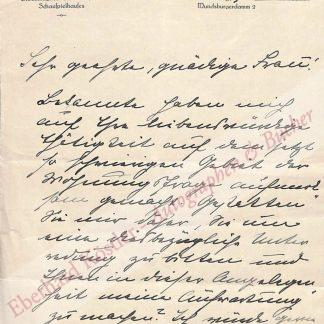 Schauspielhauses
Mundsburgerdamm 2
Sehr geehrte, gnädige Frau!
Bekannte haben mich
auf Ihre liebenswürdige
Tätigkeit auf dem jetzt
so schwierigen Gebiet der
Wohnungsfrage aufmerk-
sam gemacht. Gestatten
Sie mir daher, Sie um
eine diesbezügliche Unter
redung zu bitten und
Ihnen in dieser Angelegen
heit meine Aufwartung
zu machen? Ich würde gerne
Eberhard Köstler Autographen & Bücher